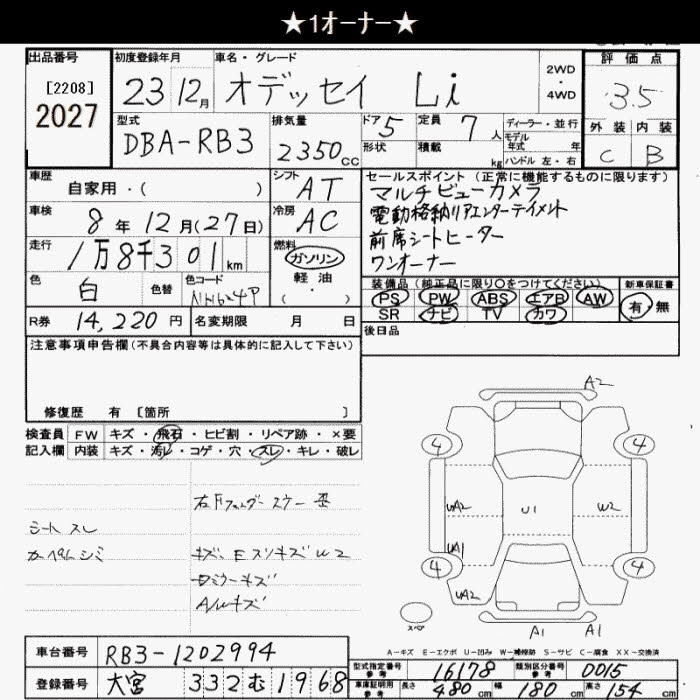 ★1オーナー★
出品番号 初度登録年月 車名・グレード 2WD・4WD 評価点
[2208]
2027
23 12月 オデッセイ Li 3.5
型式 排気量 ドア 定員 ディーラー・並行 外装 内装
DBA-RB3 2350cc 5 7人 モデル年式 年
形状 積載 kg ハンドル 左・右 C B
車歴 シフト セールスポイント (正常に機能するものに限ります)
自家用・( ) AT マルチビューカメラ
車検 冷房 電動格納リアエンターテイメント
8年12月(27日) AC 前席シートヒーター
走行 燃料 ワンオーナー
1万8千301km ガソリン
色 色替 色コード 軽油・( )
白 NH624P
装備品 (純正品に限り○をつけてください) 新車保証書
PS PW ABS エアB AW 有・無
SR ナビ TV カワ
R券 14,220円 名変期限 月 日 後日品
注意事項申告欄(不具合内容等は具体的に記入して下さい)
修復歴 有 [箇所 ]
検査員 FW キズ・飛石・ヒビ割・リペア跡・×要
記入欄 内装 キズ・汚レ・コゲ・穴・スレ・キレ・破レ
シートスレ
A2
4 4
UA2 U1 W2
UA1
4 4
UA2
スペア
A1 A1
A-キズ E-エクボ U-凹み W-補修跡 S-サビ C-腐食 XX-交換済
車台番号 RB3-1202994
登録番号 大宮 332む1968
型式指定番号 参考 16178 類別区分番号 参考 0015
車庫証明用 参考 長さ 480cm 幅 180cm 高さ 154cm